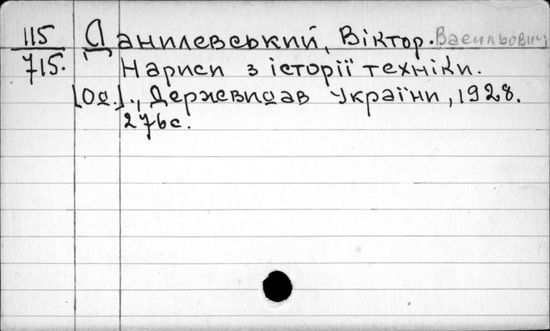 115
715.
Данилевський, Віктор. Васильович
Нариси з історії техніки.
[Од.]., Держвидав України, 1928.
276с.